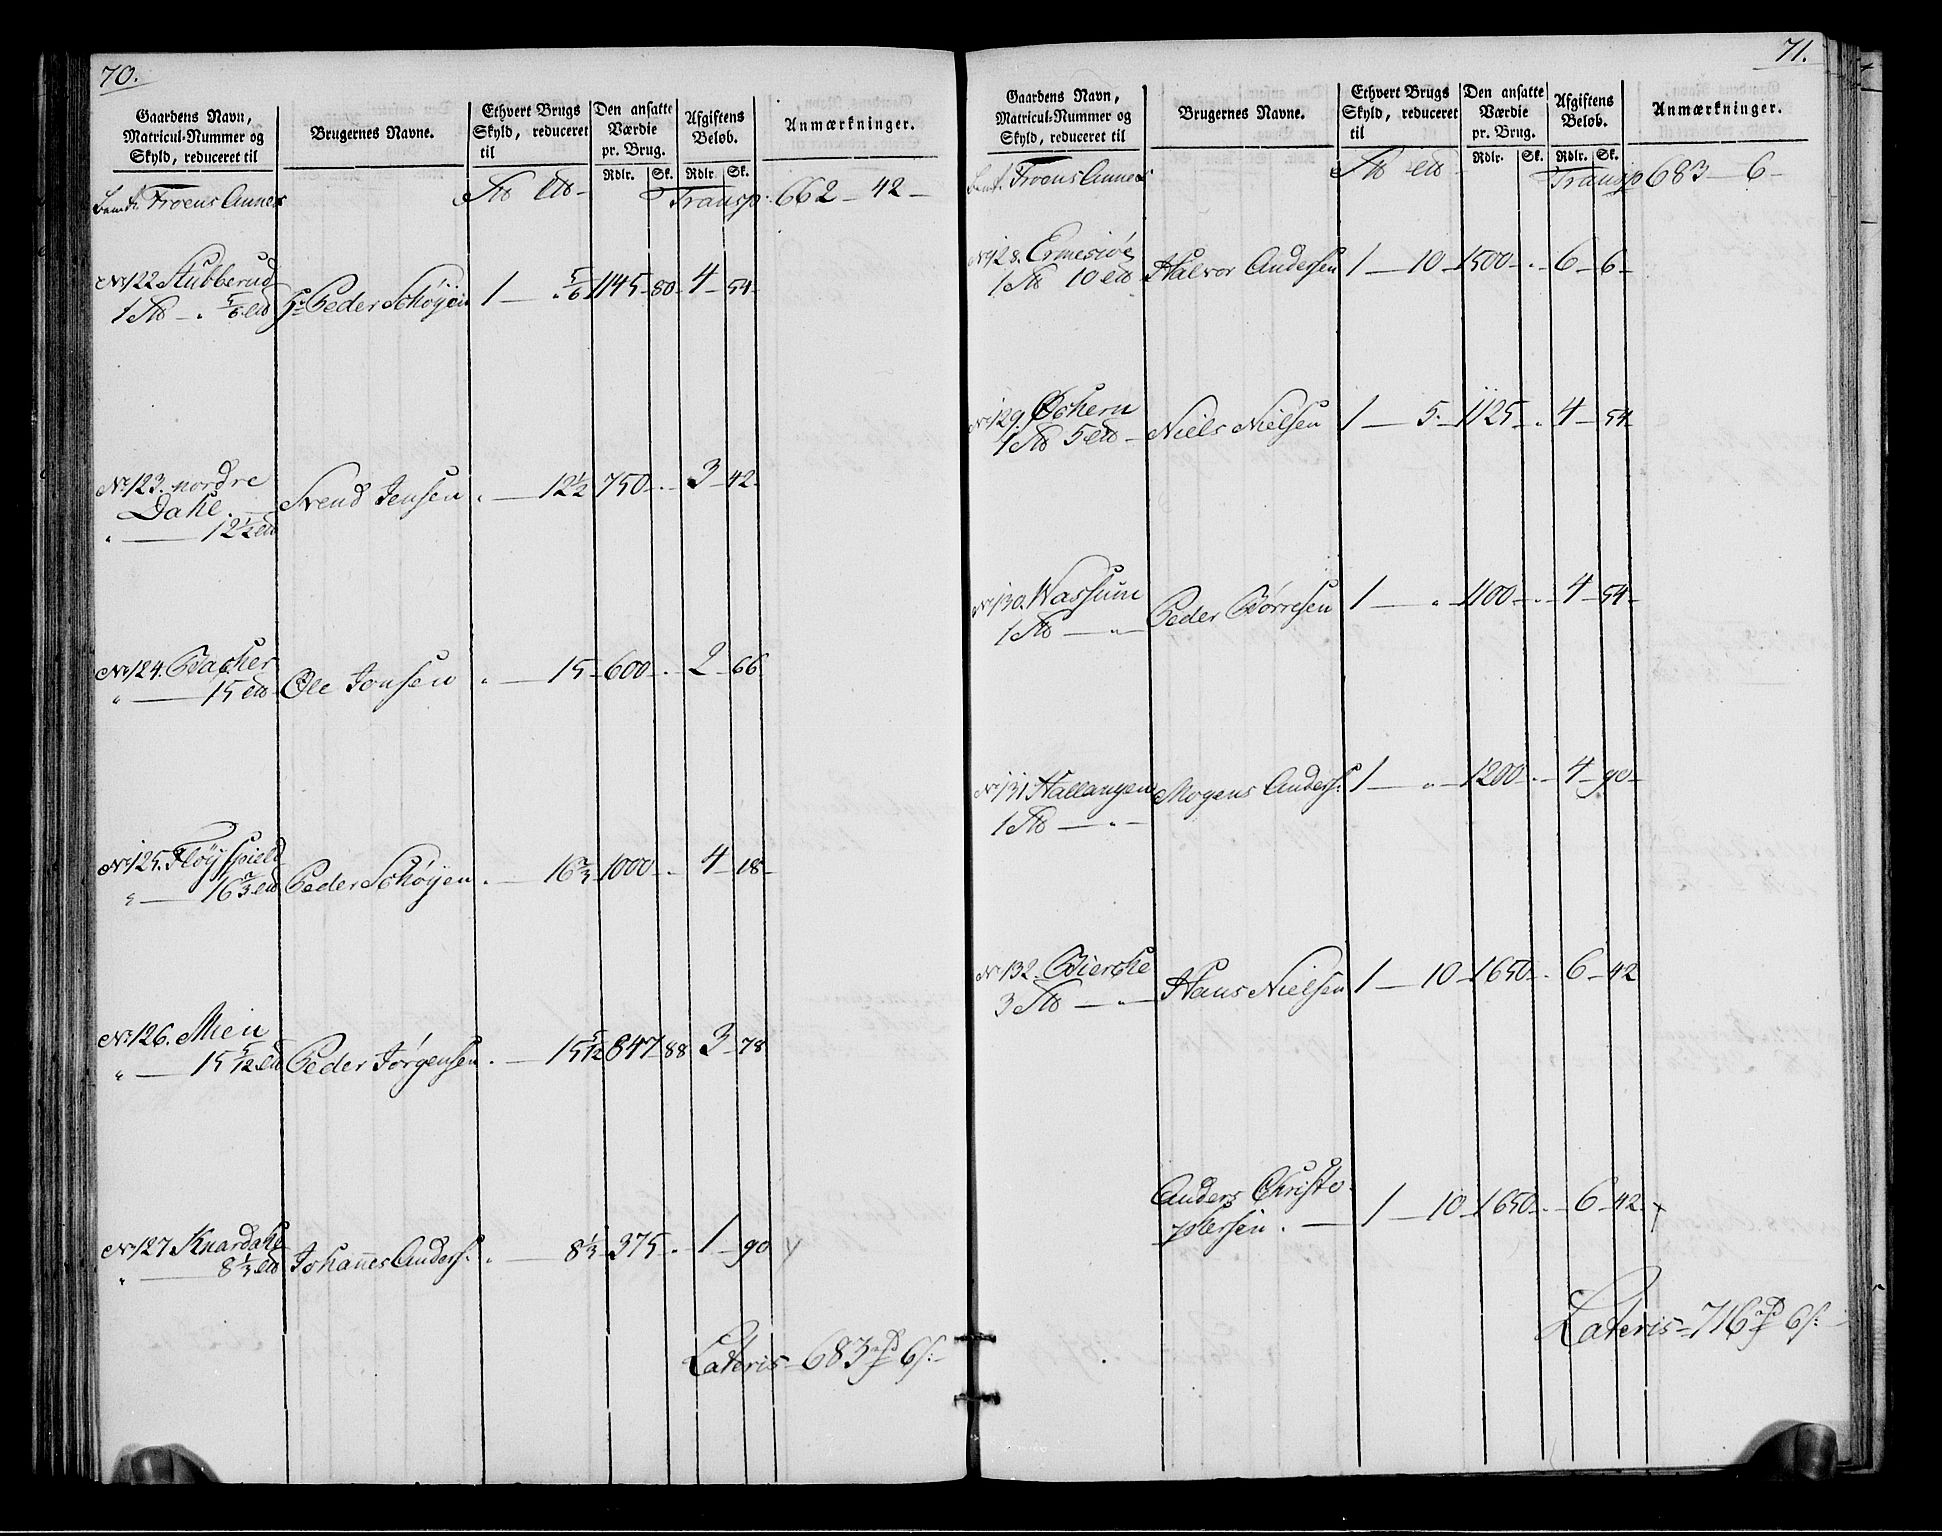 70.
Gaardens Navn, Matricul-Nummer og Skyld, reduceret til | Brugernes Navne. | Ethvert Brugs Skyld, reduceret til | Den ansatte Værdie pr. Brug. | Afgiftens Beløb. | Anmærkninger.
Rdlr. Sk. Rdlr. Sk.
Froens Annex Transp. 662 - 42 -
No 122 Stubberud
1 - 5/6 Peder Schøyen 1 - 5/6 1145 - 80 - 4 - 54 -
No 123. nordre
Dahl.
" - 12½ Svend Jensen " - 12½ 750 - . - 3 - 42 -
No 124. Bacher
" - 15 Ole Jonsen " - 15 - 600 - . - 2 - 66
No 125. Fløyspield
" - 16⅔ Peder Schøyen . - 16⅔ - 1000 - . - 4 - 18 -
No 126. Mien
" - 15 5/12 Peder Jørgensen . - 15 5/12 847 88 3 - 78
No 127 Knardahl
" - 8⅓ Johannes Anders. " - 8⅓ - 375 - . - 1 - 90
Lateris - 683 6 -
71.
Gaardens Navn, Matricul-Nummer og Skyld, reduceret til | Brugernes Navne. | Ethvert Brugs Skyld, reduceret til | Den ansatte Værdie pr. Brug. | Afgiftens Beløb. | Anmærkninger.
Rdlr. Sk. Rdlr. Sk.
Froens Annex Transp 683 - 6 -
No 128. Ermesiøe
1 10 Halvor Andersen 1 - 10 - 1500 - . - 6 - 6 -
No 129. Øchern
1 5 - Niels Nielsen 1 - 5 - 1125 - . - 4 - 54 -
No 130. Wassum
1 - " - Peder Børresen 1 - " - 1100 - . - 4 - 54 -
No 131 Hallangen
1 - " - Mogens Anders. 1 - " - 1200 - . - 4 - 90 -
No 132. Bierche
3 - " - Hans Nielsen 1 - 10 - 1650 - . - 6 - 42
Anders Christo-
phersen . - 1 - 10 - 1650 - . - 6 - 42 -
Lateris - 716 6